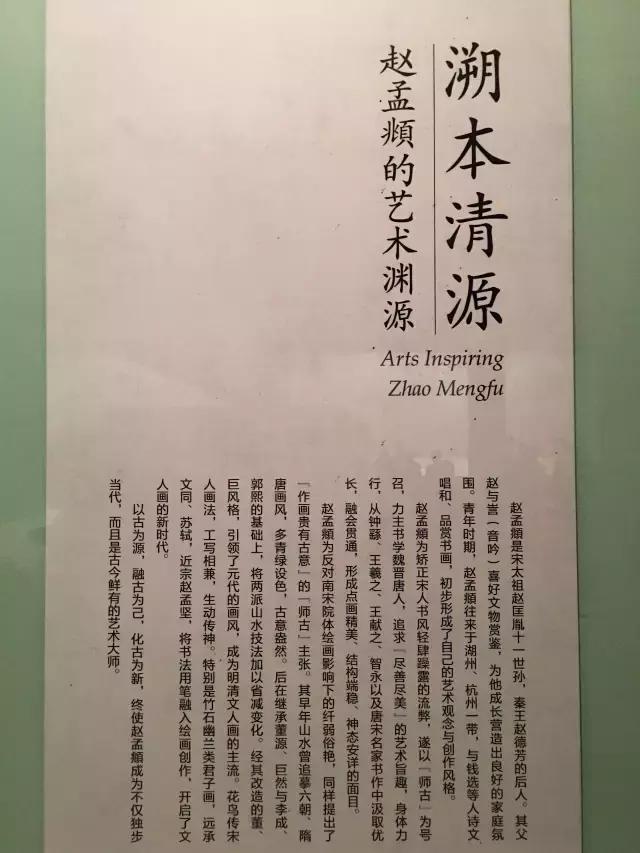 溯本清源
赵孟頫的艺术渊源
Arts Inspiring
Zhao Mengfu
赵孟頫是宋太祖赵匡胤十一世孙，秦王赵德芳的后人。其父
赵与訔（音吟）喜好文物赏鉴，为他成长营造出良好的家庭氛
围。青年时期，赵孟頫往来于湖州、杭州一带，与钱选等人诗文
唱和、品赏书画，初步形成了自己的艺术观念与创作风格。
赵孟頫为矫正宋人书风轻肆躁露的流弊，遂以『师古』为号
召，力主书学魏晋唐人，追求『尽善尽美』的艺术旨趣，身体力
行，从钟繇、王羲之、王献之、智永以及唐宋名家书作中汲取优
长，融会贯通，形成点画精美、结构端稳、神态安详的面目。
赵孟頫为反对南宋院体绘画影响下的纤弱俗艳，同样提出了
『作画贵有古意』的『师古』主张。其早年山水曾追摹六朝、隋
唐画风，多青绿设色，古意盎然。后在继承董源、巨然与李成、
郭熙的基础上，将两派山水技法加以省减变化。经其改造的董、
巨风格，引领了元代的画风，成为明清文人画的主流。花鸟传宋
人画法，工写相兼，生动传神。特别是竹石幽兰类君子画，远承
文同、苏轼，近宗赵孟坚，将书法用笔融入绘画创作，开启了文
人画的新时代。
以古为源，融古为己，化古为新，终使赵孟頫成为不仅独步
当代，而且是古今鲜有的艺术大师。